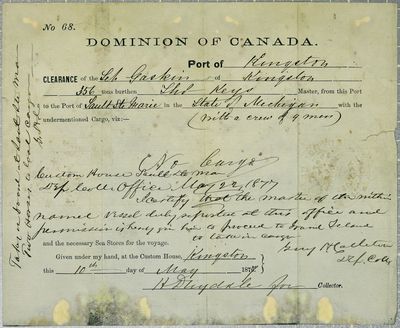 No 68.
DOMINION OF CANADA.
Port of Kingston
CLEARANCE of the Sch Gaskin of Kingston
356 tons burthen Thos Keys Master, from this Port
to the Port of Sault St. Marie in the State of Michigan with the
undermentioned Cargo, viz:— (With a crew of 9 men)
No Cargo
Custom House Sault Ste Ma
Dep Coll Office May 22, 1877
I certify that the master of the within
named Vessel duly reported at this office and
permission is hereby given him to proceed to Grand Island
to take in cargo
and the necessary Sea Stores for the voyage. Dep. Coll.
Given under my hand, at the Custom House, Kingston
this 10th day of May 187
for Collector.
Taken on board at Sault Ste Ma
Two Horses